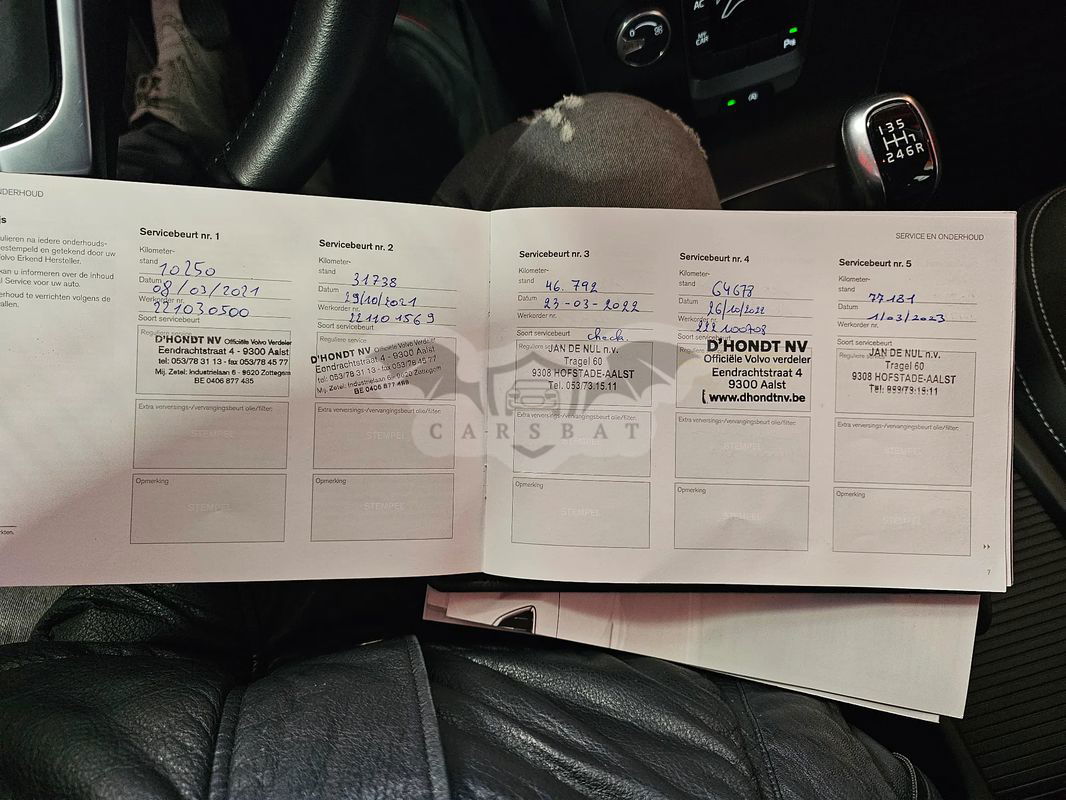 AC
MY
CAR
1 3 5
7
2 4 6 R
ONDERHOUD
SERVICE EN ONDERHOUD
Servicebeurt nr. 1
Kilometer-
stand 10250
Datum 08/03/2021
Werkorder nr.
221030500
Soort servicebeurt
Reguliere service
D'HONDT NV Officiële Volvo Verdeler
Eendrachtstraat 4 - 9300 Aalst
tel: 053/78 31 13 - fax 053/78 45 77
Mij. Zetel: Industrielaan 6 - 9620 Zottegem
BE 0406 877 485
Extra verversings-/vervangingsbeurt olie/filter:
STEMPEL
Opmerking
STEMPEL
Servicebeurt nr. 2
Kilometer-
stand 31738
Datum 29/10/2021
Werkorder nr.
221101569
Soort servicebeurt
Reguliere service
D'HONDT NV Officiële Volvo Verdeler
Eendrachtstraat 4 - 9300 Aalst
tel: 053/78 31 13 - fax 053/78 45 77
Mij. Zetel: Industrielaan 6 - 9620 Zottegem
BE 0406 877 485
Extra verversings-/vervangingsbeurt olie/filter:
STEMPEL
Opmerking
STEMPEL
Servicebeurt nr. 3
Kilometer-
stand 46.792
Datum 23-03-2022
Werkorder nr.
Soort servicebeurt check
JAN DE NUL n.v.
Tragel 60
9308 HOFSTADE-AALST
Tel. 053/73.15.11
Extra verversings-/vervangingsbeurt olie/filter:
STEMPEL
Opmerking
STEMPEL
Servicebeurt nr. 4
Kilometer-
stand 64673
Datum 26/10/2022
Werkorder nr.
222100708
Soort servicebeurt
D'HONDT NV
Officiële Volvo verdeler
Eendrachtstraat 4
9300 Aalst
www.dhondtnv.be
Extra verversings-/vervangingsbeurt olie/filter:
STEMPEL
Opmerking
STEMPEL
Servicebeurt nr. 5
Kilometer-
stand 77181
Datum 1/03/2023
Werkorder nr.
Soort servicebeurt
JAN DE NUL n.v.
Tragel 60
9308 HOFSTADE-AALST
Tel. 053/73.15.11
Extra verversings-/vervangingsbeurt olie/filter:
STEMPEL
Opmerking
STEMPEL
7
CARSBAT